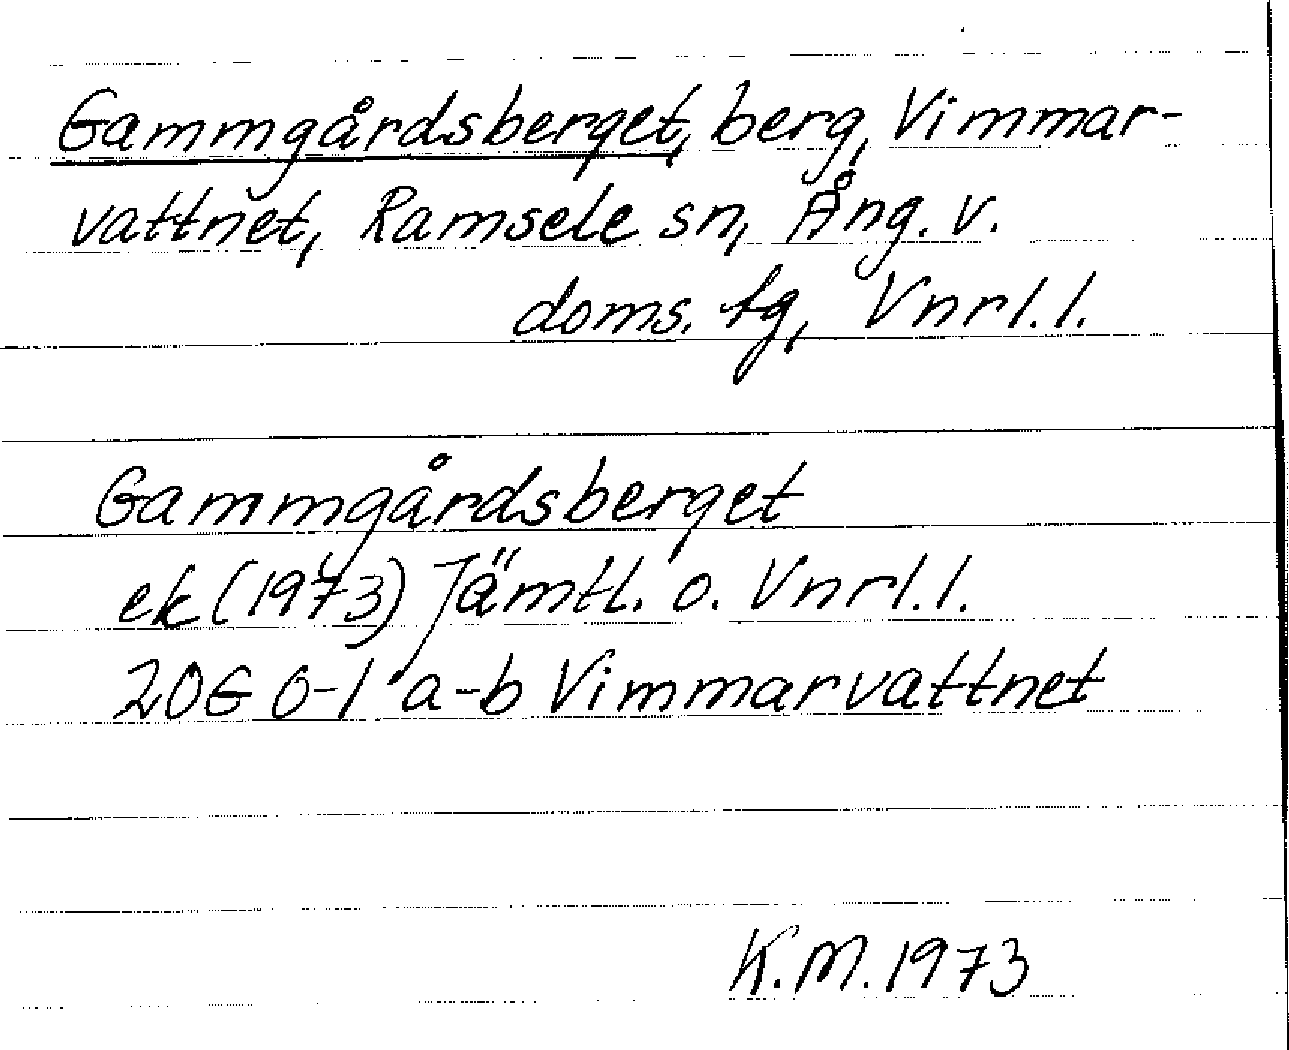 Gammgårdsberget, berg, Vimmar-
vattnet, Ramsele sn, Ång. v.
doms. tg, Vnrl. l.
Gammgårdsberget
ek (1973) Jämtl. o. Vnrl. l.
20G 0-1 a-b Vimmarvattnet
K.M. 1973